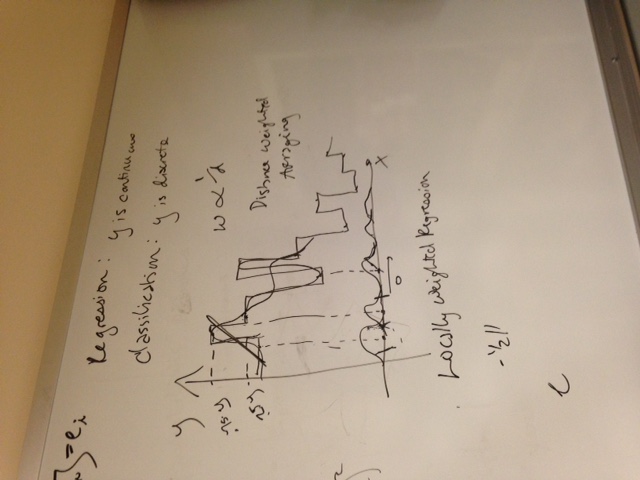 }=ei
Regression: y is continuous
Classification: y is discrete
y
w ∝ 1/d
.75 y
.5 y
Distance Weighted
Averaging
x
Locally Weighted Regression
-½||
e